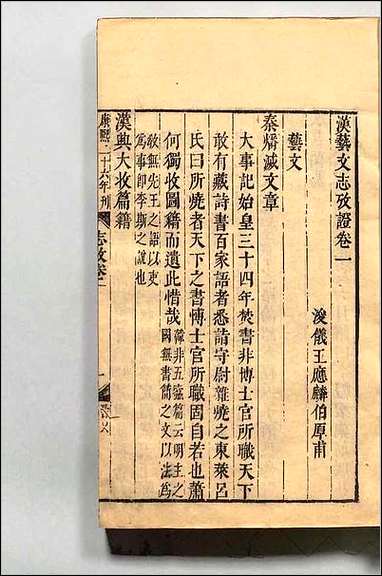 漢藝文志攷證卷一
浚儀王應麟伯厚甫
藝文
秦燔滅文章
大事記始皇三十四年焚書非博士官所職天下
敢有藏詩書百家語者悉詣守尉雜燒之東萊呂
氏曰所燒者天下之書博士官所職固自若也蕭
何獨收圖籍而遺此惜哉
韓非五蠹篇云明主之
國無書簡之文以法爲
敎無先王之語以吏
爲事卽李斯之說也
漢興大收篇籍
康熙二十六年刋
志攷卷一
一